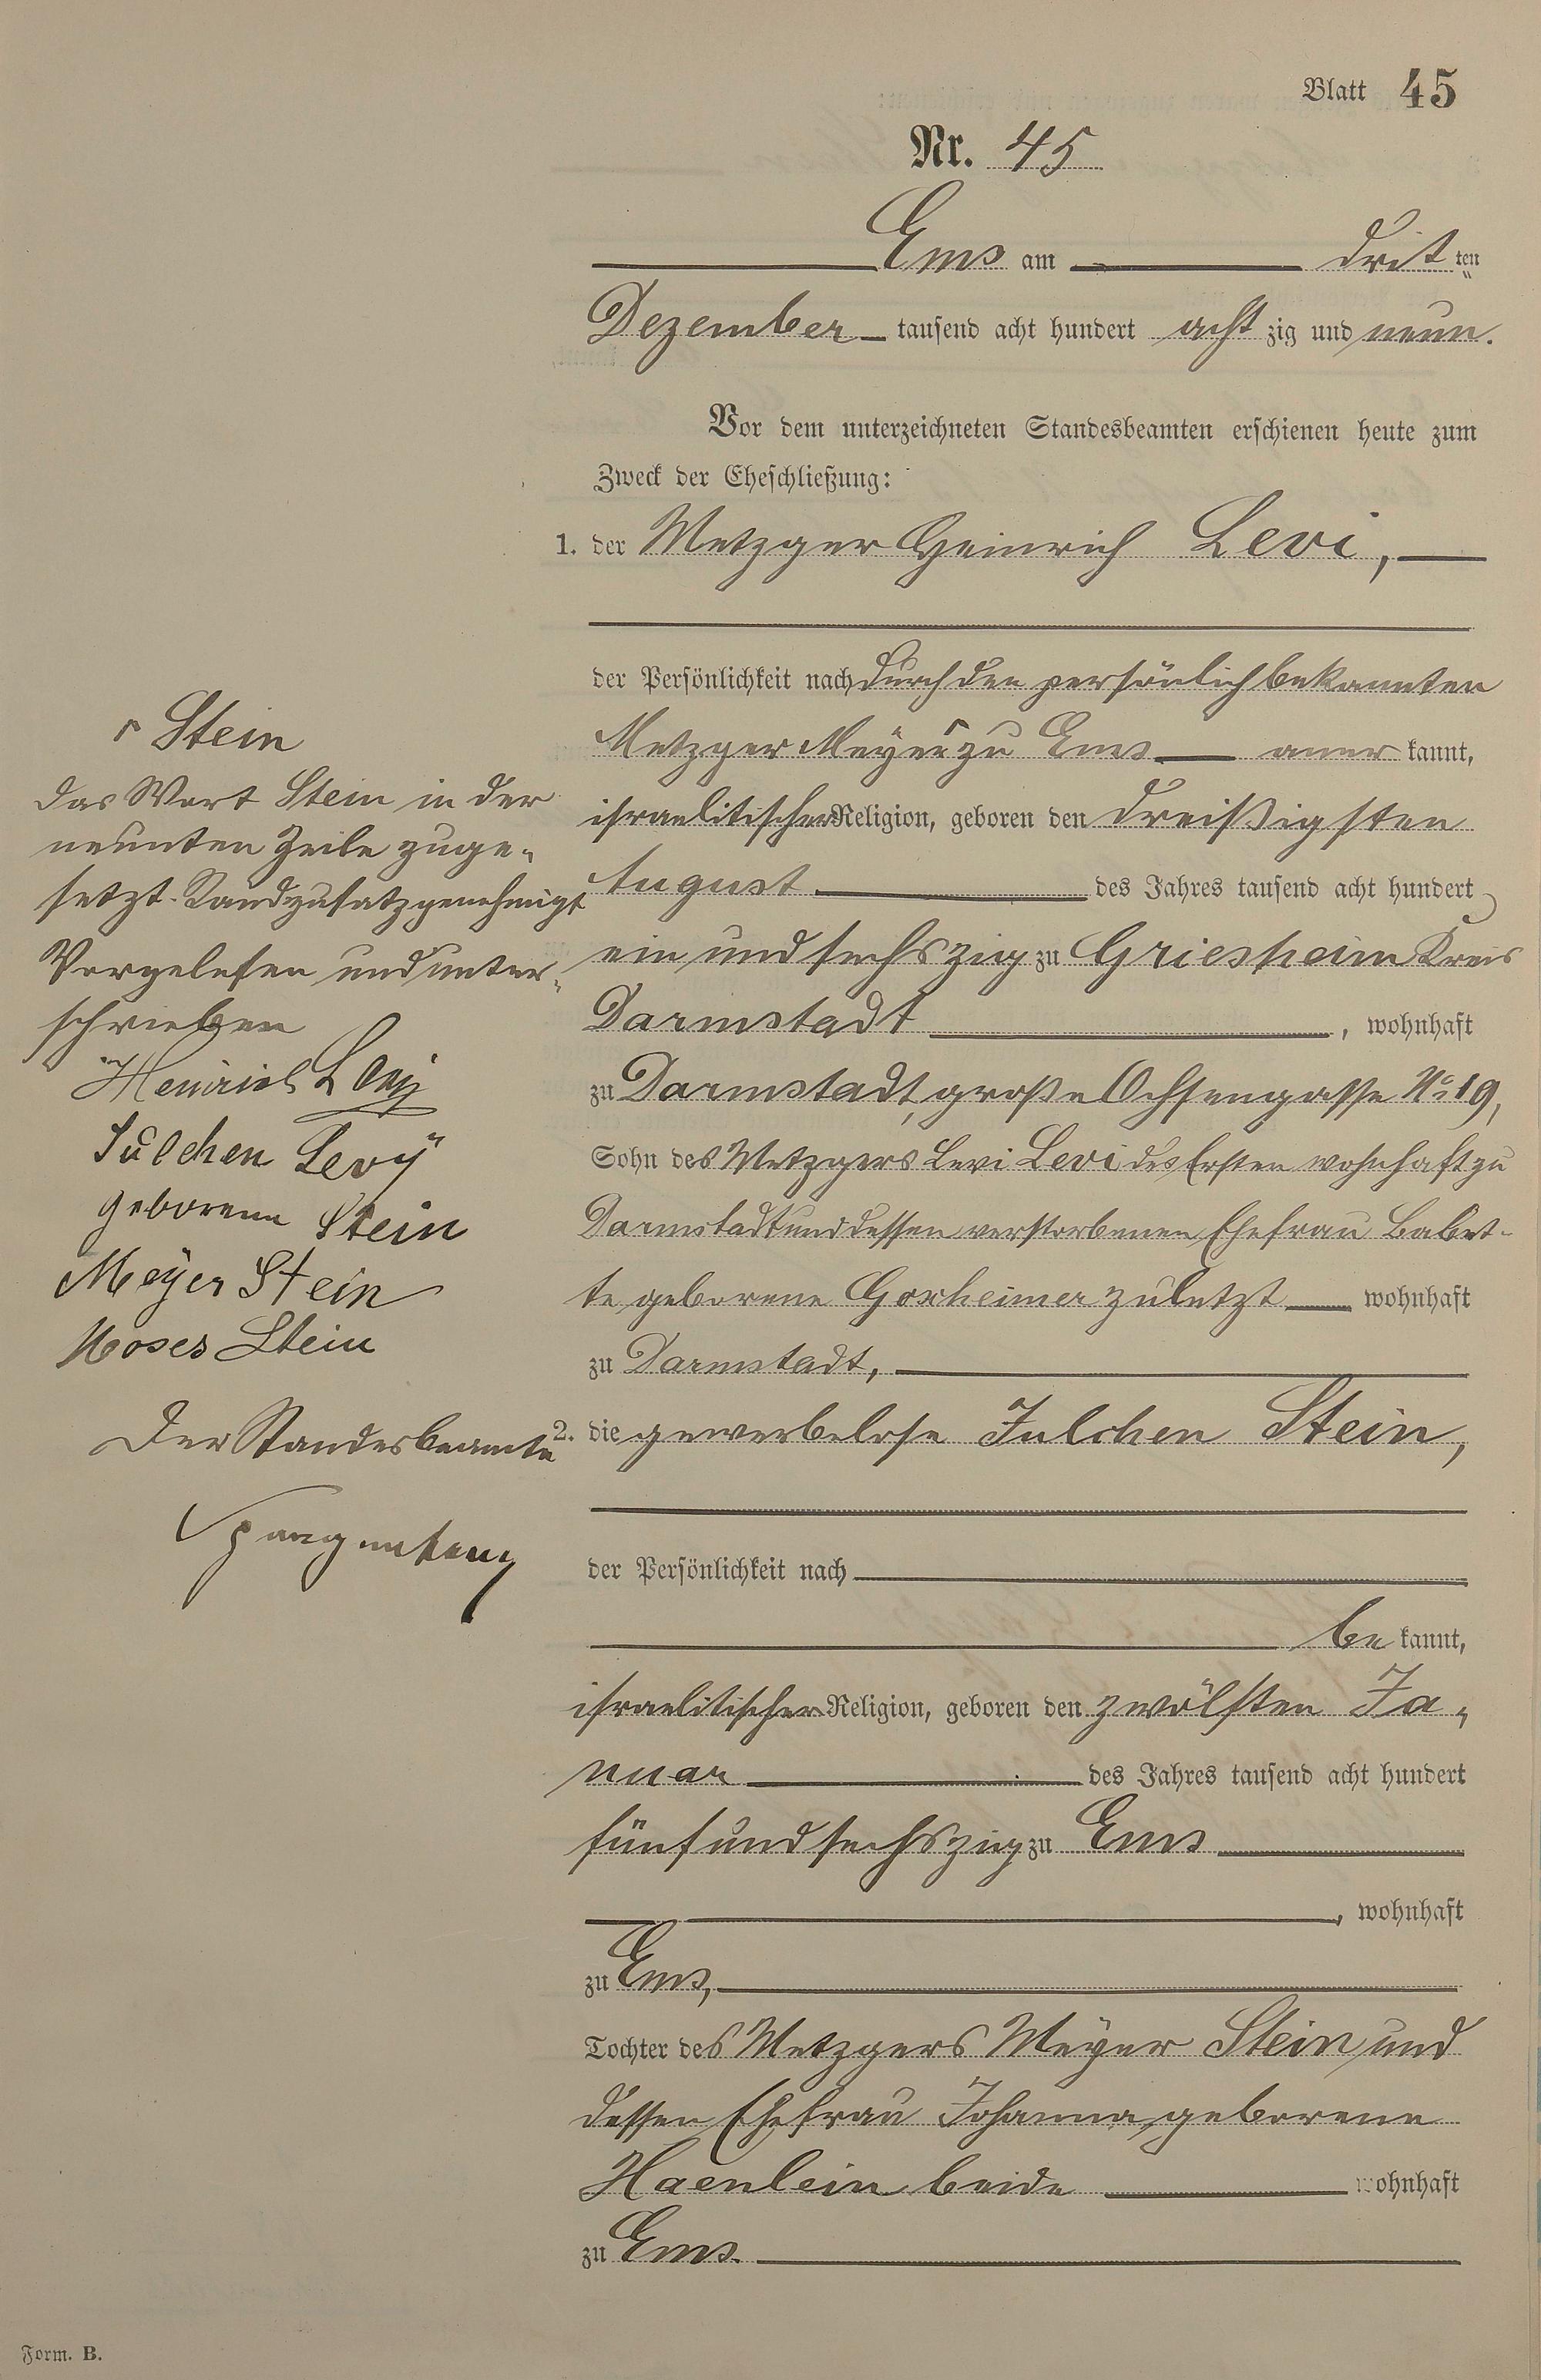 Blatt 45
Nr. 45
Ems am dritten
Dezember tausend acht hundert achtzig und neun.
Vor dem unterzeichneten Standesbeamten erschienen heute zum
Zweck der Eheschließung:
1. der Metzger Heinrich Levi,
der Persönlichkeit nach durch den persönlich bekannten
Metzger Meyer ┌ zu Ems anerkannt,
israelitischer Religion, geboren den dreißigsten
August des Jahres tausend acht hundert
ein und sechszig zu Griesheim Kreis
Darmstadt, wohnhaft
zu Darmstadt, große Ochsengasse No 19,
Sohn des Metzgers Levi Levi des Ersten wohnhaft zu
Darmstadt und dessen verstorbenen Ehefrau Babet-
te geborene Goxheimer zuletzt wohnhaft
zu Darmstadt,
2. die gewerbelose Julchen Stein,
der Persönlichkeit nach
bekannt,
israelitischer Religion, geboren den zwölften Ja-
nuar des Jahres tausend acht hundert
fünf und sechszig zu Ems
, wohnhaft
zu Ems,
Tochter des Metzgers Meyer Stein und
dessen Ehefrau Johanna geborene
Haenlein beide wohnhaft
zu Ems.
┌ Stein
Das Wort Stein in der
neunten Zeile zuge-
setzt. Randzusatz genehmigt
Vorgelesen und unter-
schrieben
Heinrich Levj
Julchen Levÿ
geborene Stein
Meyer Stein
Moses Stein
Der Standesbeamte
Spangenberg
Form. B.